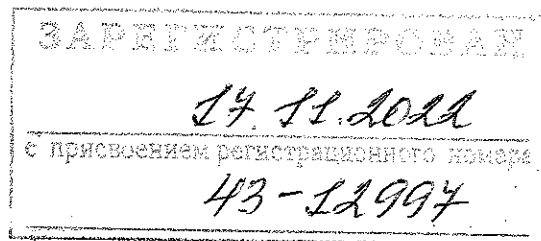 ЗАРЕГИСТРИРОВАН
17.11.2022
с присвоением регистрационного номера
43-12997